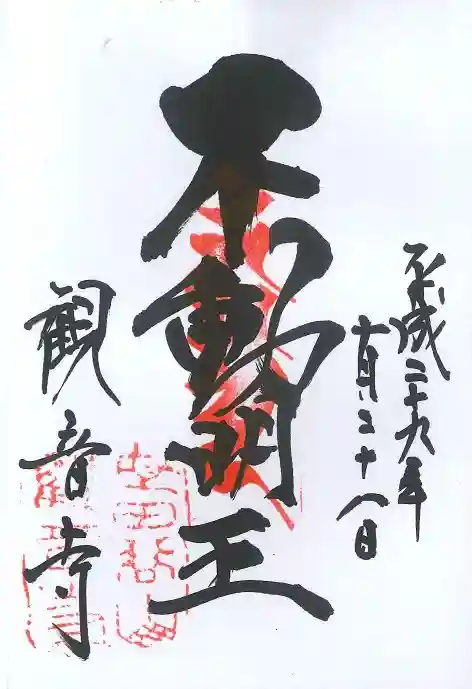 平成二十九年
十一月二十八日
不動明王
観音寺